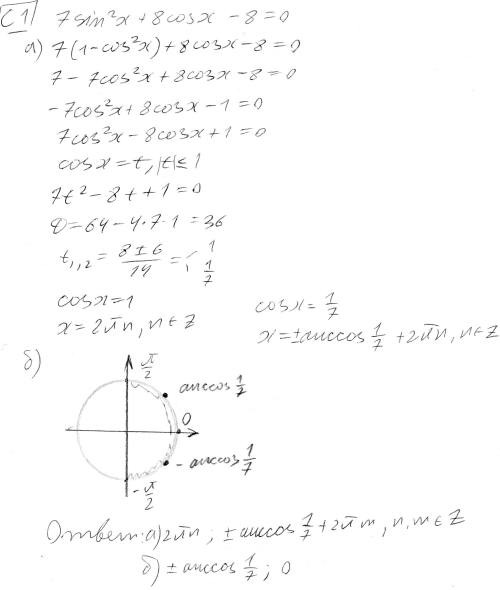 C1 7sin²x + 8cosx - 8 = 0
а) 7(1 - cos²x) + 8cosx - 8 = 0
7 - 7cos²x + 8cosx - 8 = 0
-7cos²x + 8cosx - 1 = 0
7cos²x - 8cosx + 1 = 0
cosx = t, |t| ≤ 1
7t² - 8t + 1 = 0
D = 64 - 4·7·1 = 36
t₁,₂ = (8 ± 6)/14 = 1; 1/7
cosx = 1
x = 2πn, n ∈ Z
cosx = 1/7
x = ± arccos 1/7 + 2πn, n ∈ Z
б)
π/2
arccos 1/7
0
- arccos 1/7
- π/2
Ответ: а) 2πn; ± arccos 1/7 + 2πm, n, m ∈ Z
б) ± arccos 1/7; 0